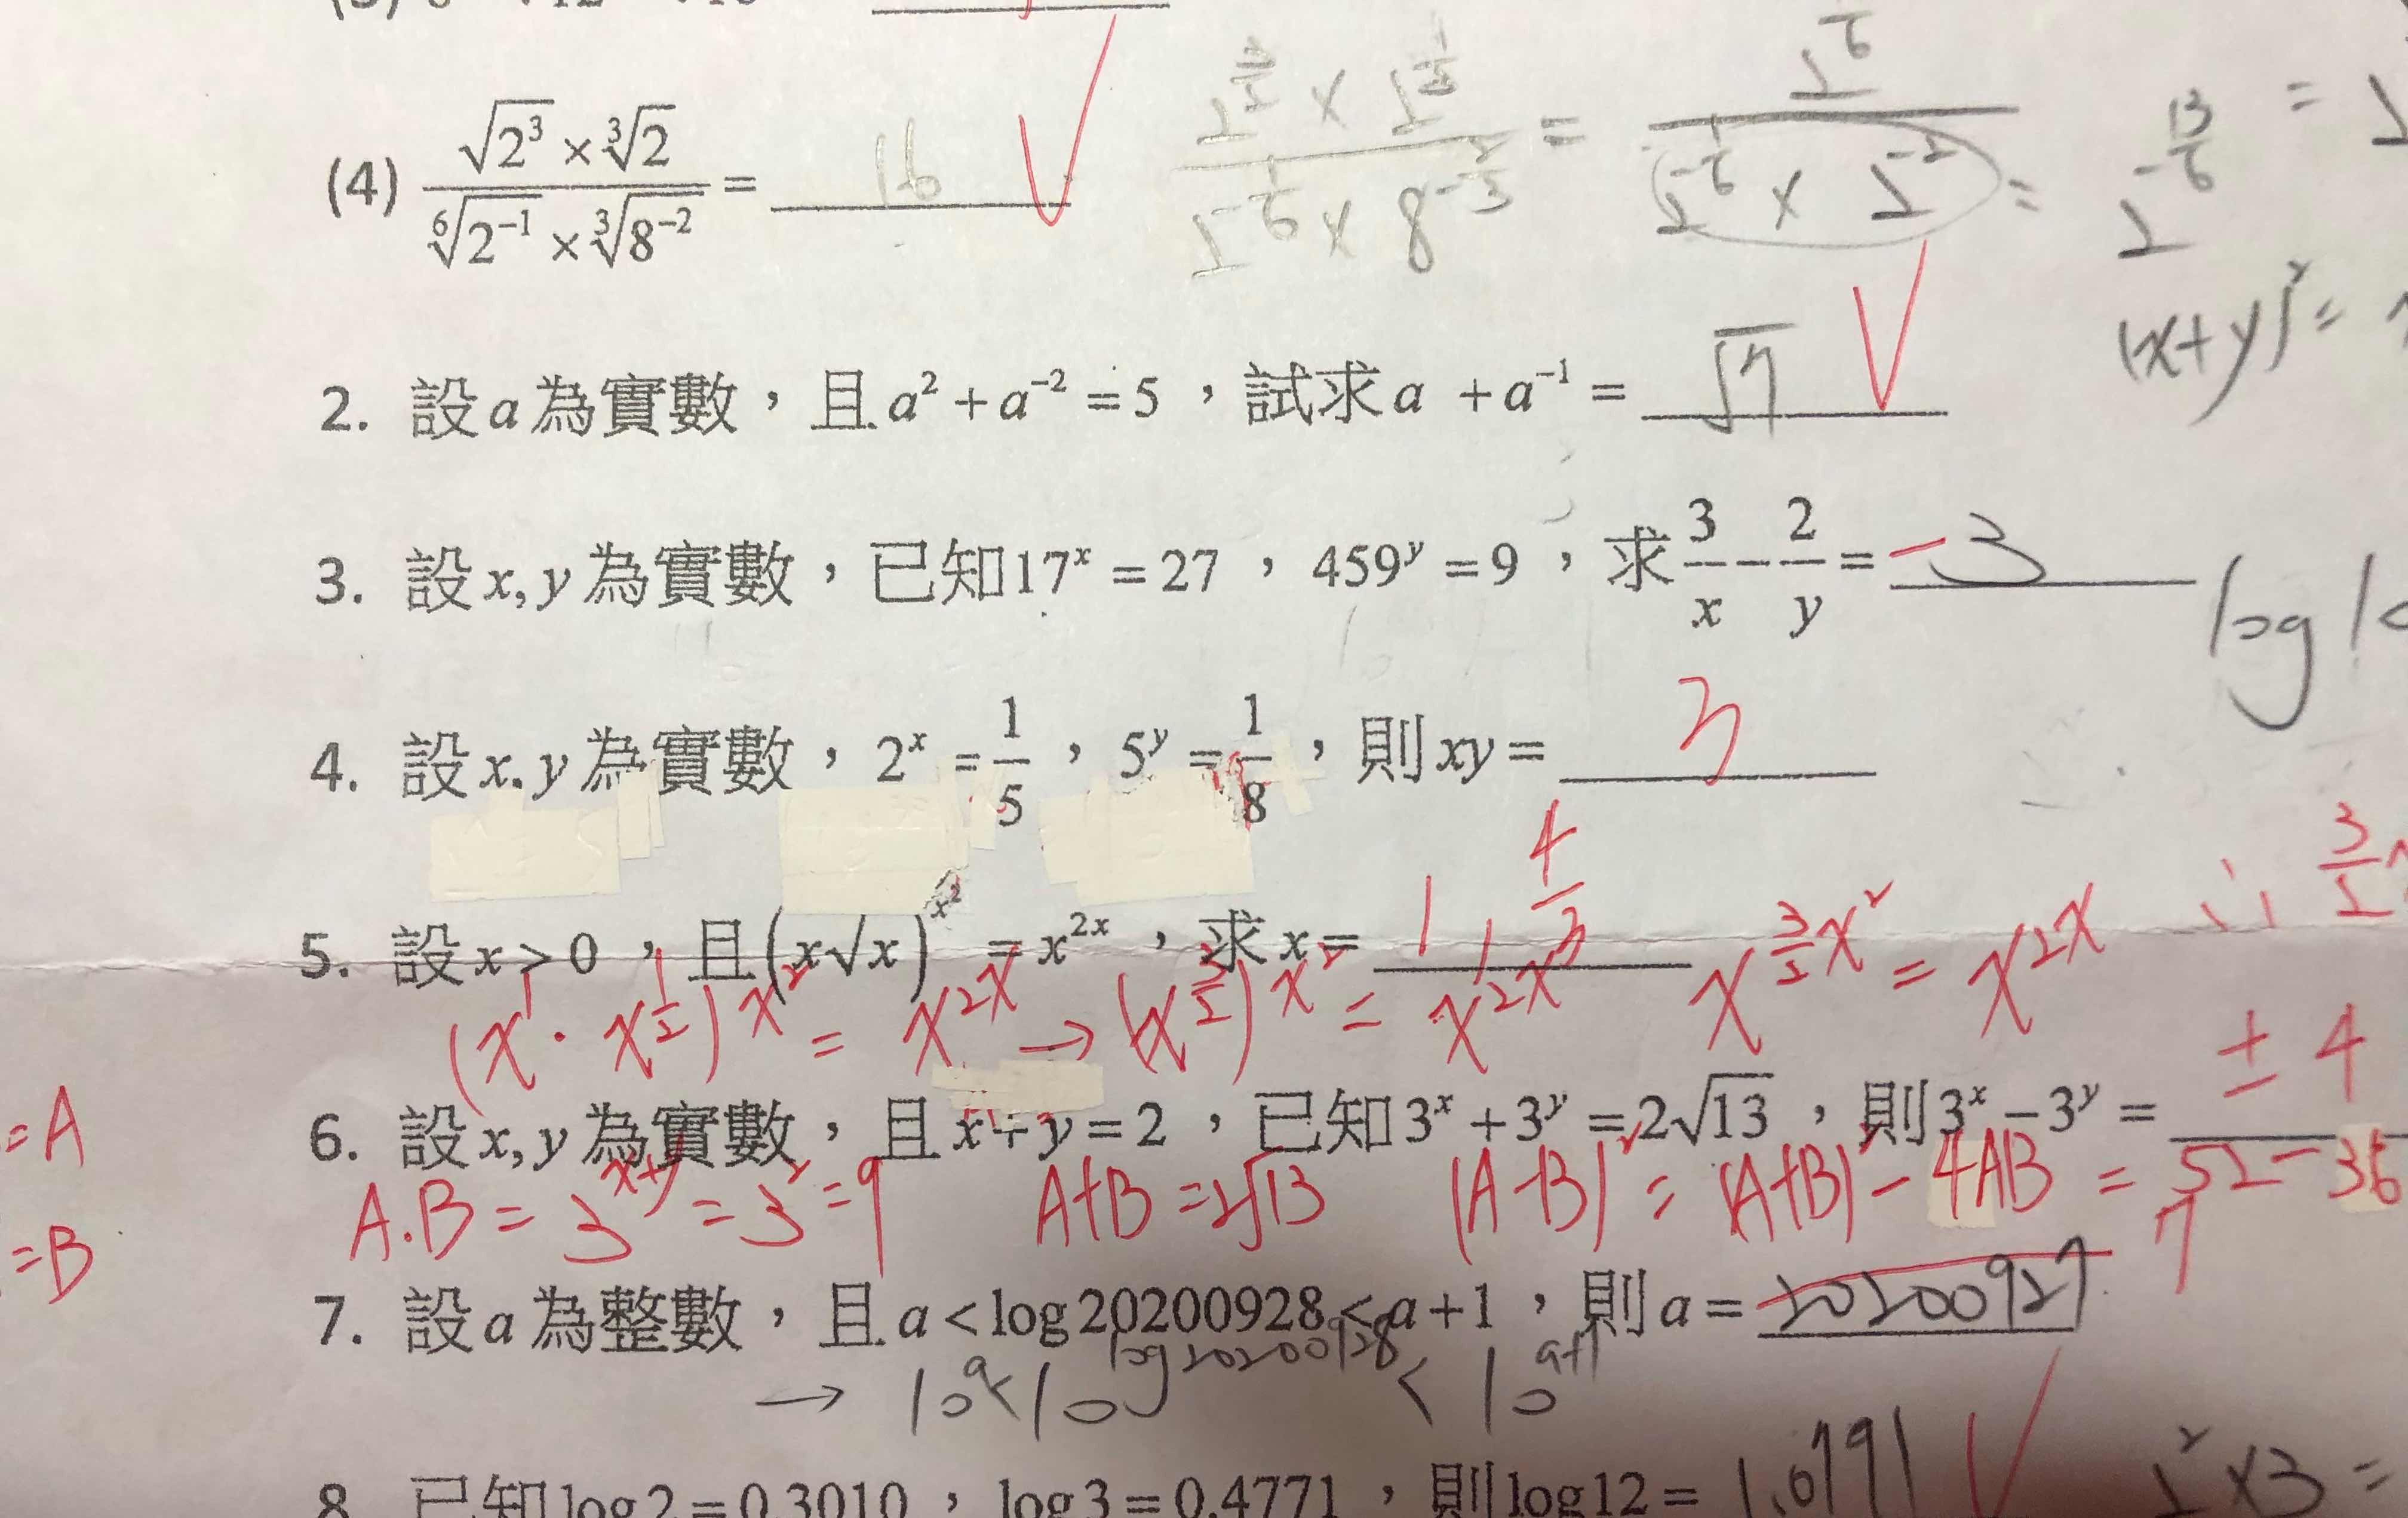 (4) \frac{\sqrt{2^3} × \sqrt[3]{2}}{\sqrt[6]{2^{-1}} × \sqrt[3]{8^{-2}}} = 16 ✓
\frac{2^{\frac{3}{2}} × 2^{\frac{1}{3}}}{2^{-\frac{1}{6}} × 8^{-\frac{2}{3}}} =
2^{-\frac{1}{6}} × 2^{-2} =
2^{-\frac{13}{6}} = 2
(x+y)^2 =
2. 設 a 為實數,且 a^2 + a^{-2} = 5,試求 a + a^{-1} = √7 ✓
3. 設 x, y 為實數,已知 17^x = 27,459^y = 9,求 \frac{3}{x} - \frac{2}{y} = -3
log 10
4. 設 x, y 為實數,2^x = \frac{1}{5},5^y = \frac{1}{8},則 xy = 3
5. 設 x > 0,且 (x√x)^{x^2} = x^{2x},求 x = 1, \frac{4}{3}
(x^1 · x^{\frac{1}{2}})^{x^2} = x^{2x} → (x^{\frac{3}{2}})^{x^2} = x^{2x}
x^{\frac{3}{2}x^2} = x^{2x}
∴ \frac{3}{2}
6. 設 x, y 為實數,且 x + y = 2,已知 3^x + 3^y = 2√13,則 3^x - 3^y = ±4
= A
= B
A·B = 3^{x+y} = 3^2 = 9 A+B = 2√13 (A-B)^2 = (A+B)^2 - 4AB = 52-36
7. 設 a 為整數,且 a < log 20200928 < a + 1,則 a = 20200927
7
→ 10^a < 10^{log 20200928} < 10^{a+1}
8. 已知 log 2 = 0.3010,log 3 = 0.4771,則 log 12 = 1.0791 ✓
2^2 × 3 =